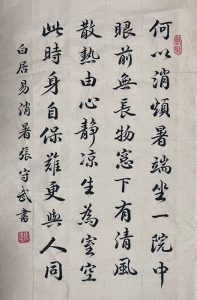 何以消煩暑端坐一院中
眼前無長物窓下有清風
散熱由心靜凉生為室空
此時身自保難更與人同
白居易消暑張守武書